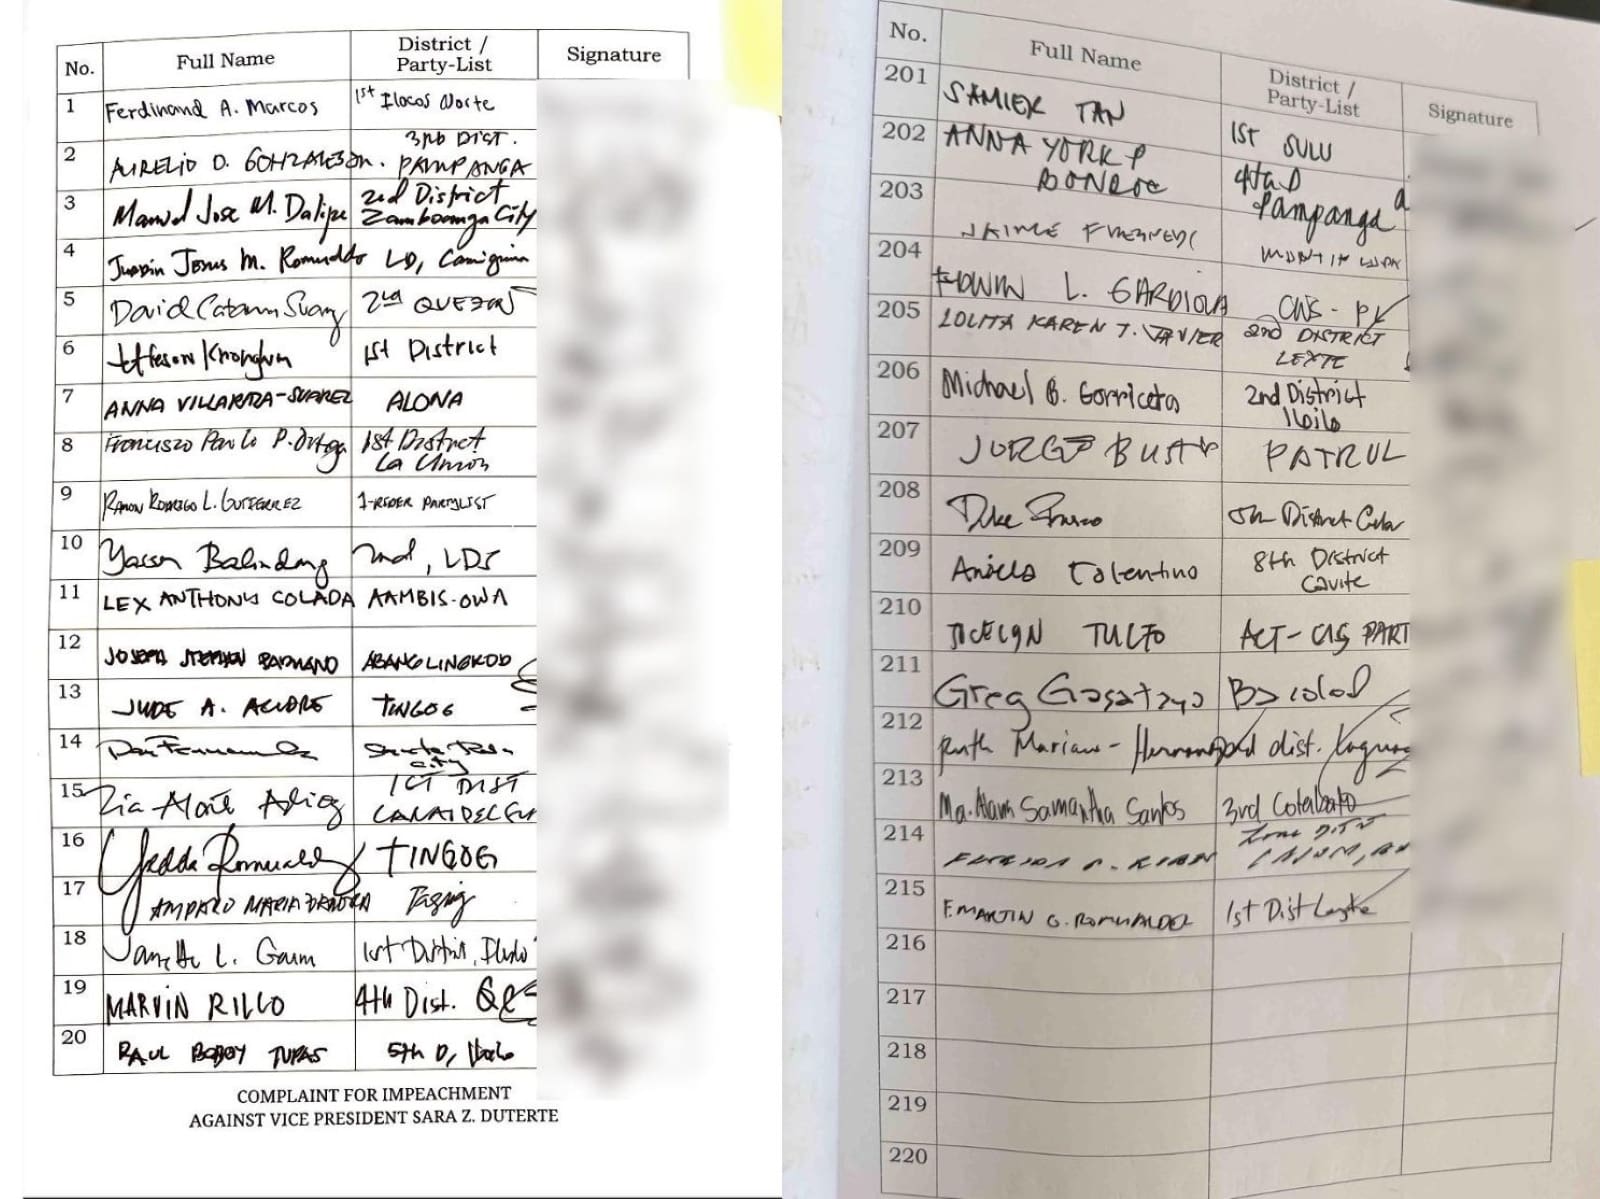 No. Full Name District / Party-List Signature
1 Ferdinand A. Marcos 1st Ilocos Norte
2 AURELIO D. GONZALES JR. 3RD DIST. PAMPANGA
3 Manuel Jose M. Dalipe 2nd District Zamboanga City
4 Jurdin Jesus M. Romualdo LD, Camiguin
5 David Catarina Suarez 2nd QUEZON
6 Jefferson Khonghun 1st District
7 ANNA VILLARAZA-SUAREZ ALONA
8 Francisco Paolo P. Ortega 1st District La Union
9 RAMON RODRIGO L. GUTIERREZ 1-RIDER PARTYLIST
10 Yasser Balindong 2nd, LDS
11 LEX ANTHONY COLADA AAMBIS-OWA
12 JOSEPH STEPHEN PADUANO ABANG LINGKOD
13 JUDE A. ACIDRE TINGOG
14 Dan Fernandez Santa Rosa City
15 Zia Alonto Adiong 1ST DIST LANAO DEL SUR
16 Yedda Romualdez TINGOG
17 AMPARO MARIA ZAMORA Taguig
18 Janette L. Garin 1st District, Iloilo
19 MARVIN RILLO 4th Dist. QC
20 RAUL BOBOY TUPAS 5th D, Iloilo
COMPLAINT FOR IMPEACHMENT
AGAINST VICE PRESIDENT SARA Z. DUTERTE
No. Full Name District / Party-List Signature
201 SAMIER TAN 1ST SULU
202 ANNA YORK P BONDOC 4th D Pampanga
203 JAIME FRESNEDI MUNTINLUPA
204 EDWIN L. GARDIOLA CWS - PL
205 LOLITA KAREN T. JAVIER 2nd DISTRICT LEYTE
206 Michael B. Gorriceta 2nd District Iloilo
207 JORGE BUSTOS PATROL
208 Duke Frasco 5th District Cebu
209 Aniela Tolentino 8th District Cavite
210 JOCELYN TULFO ACT-CIS PART
211 Greg Gasataya Bacolod
212 Ruth Mariano-Hernandez 2nd dist. Laguna
213 Ma. Alana Samantha Santos 3rd Cotabato
214
215 F. MARTIN G. ROMUALDEZ 1st Dist Leyte
216
217
218
219
220